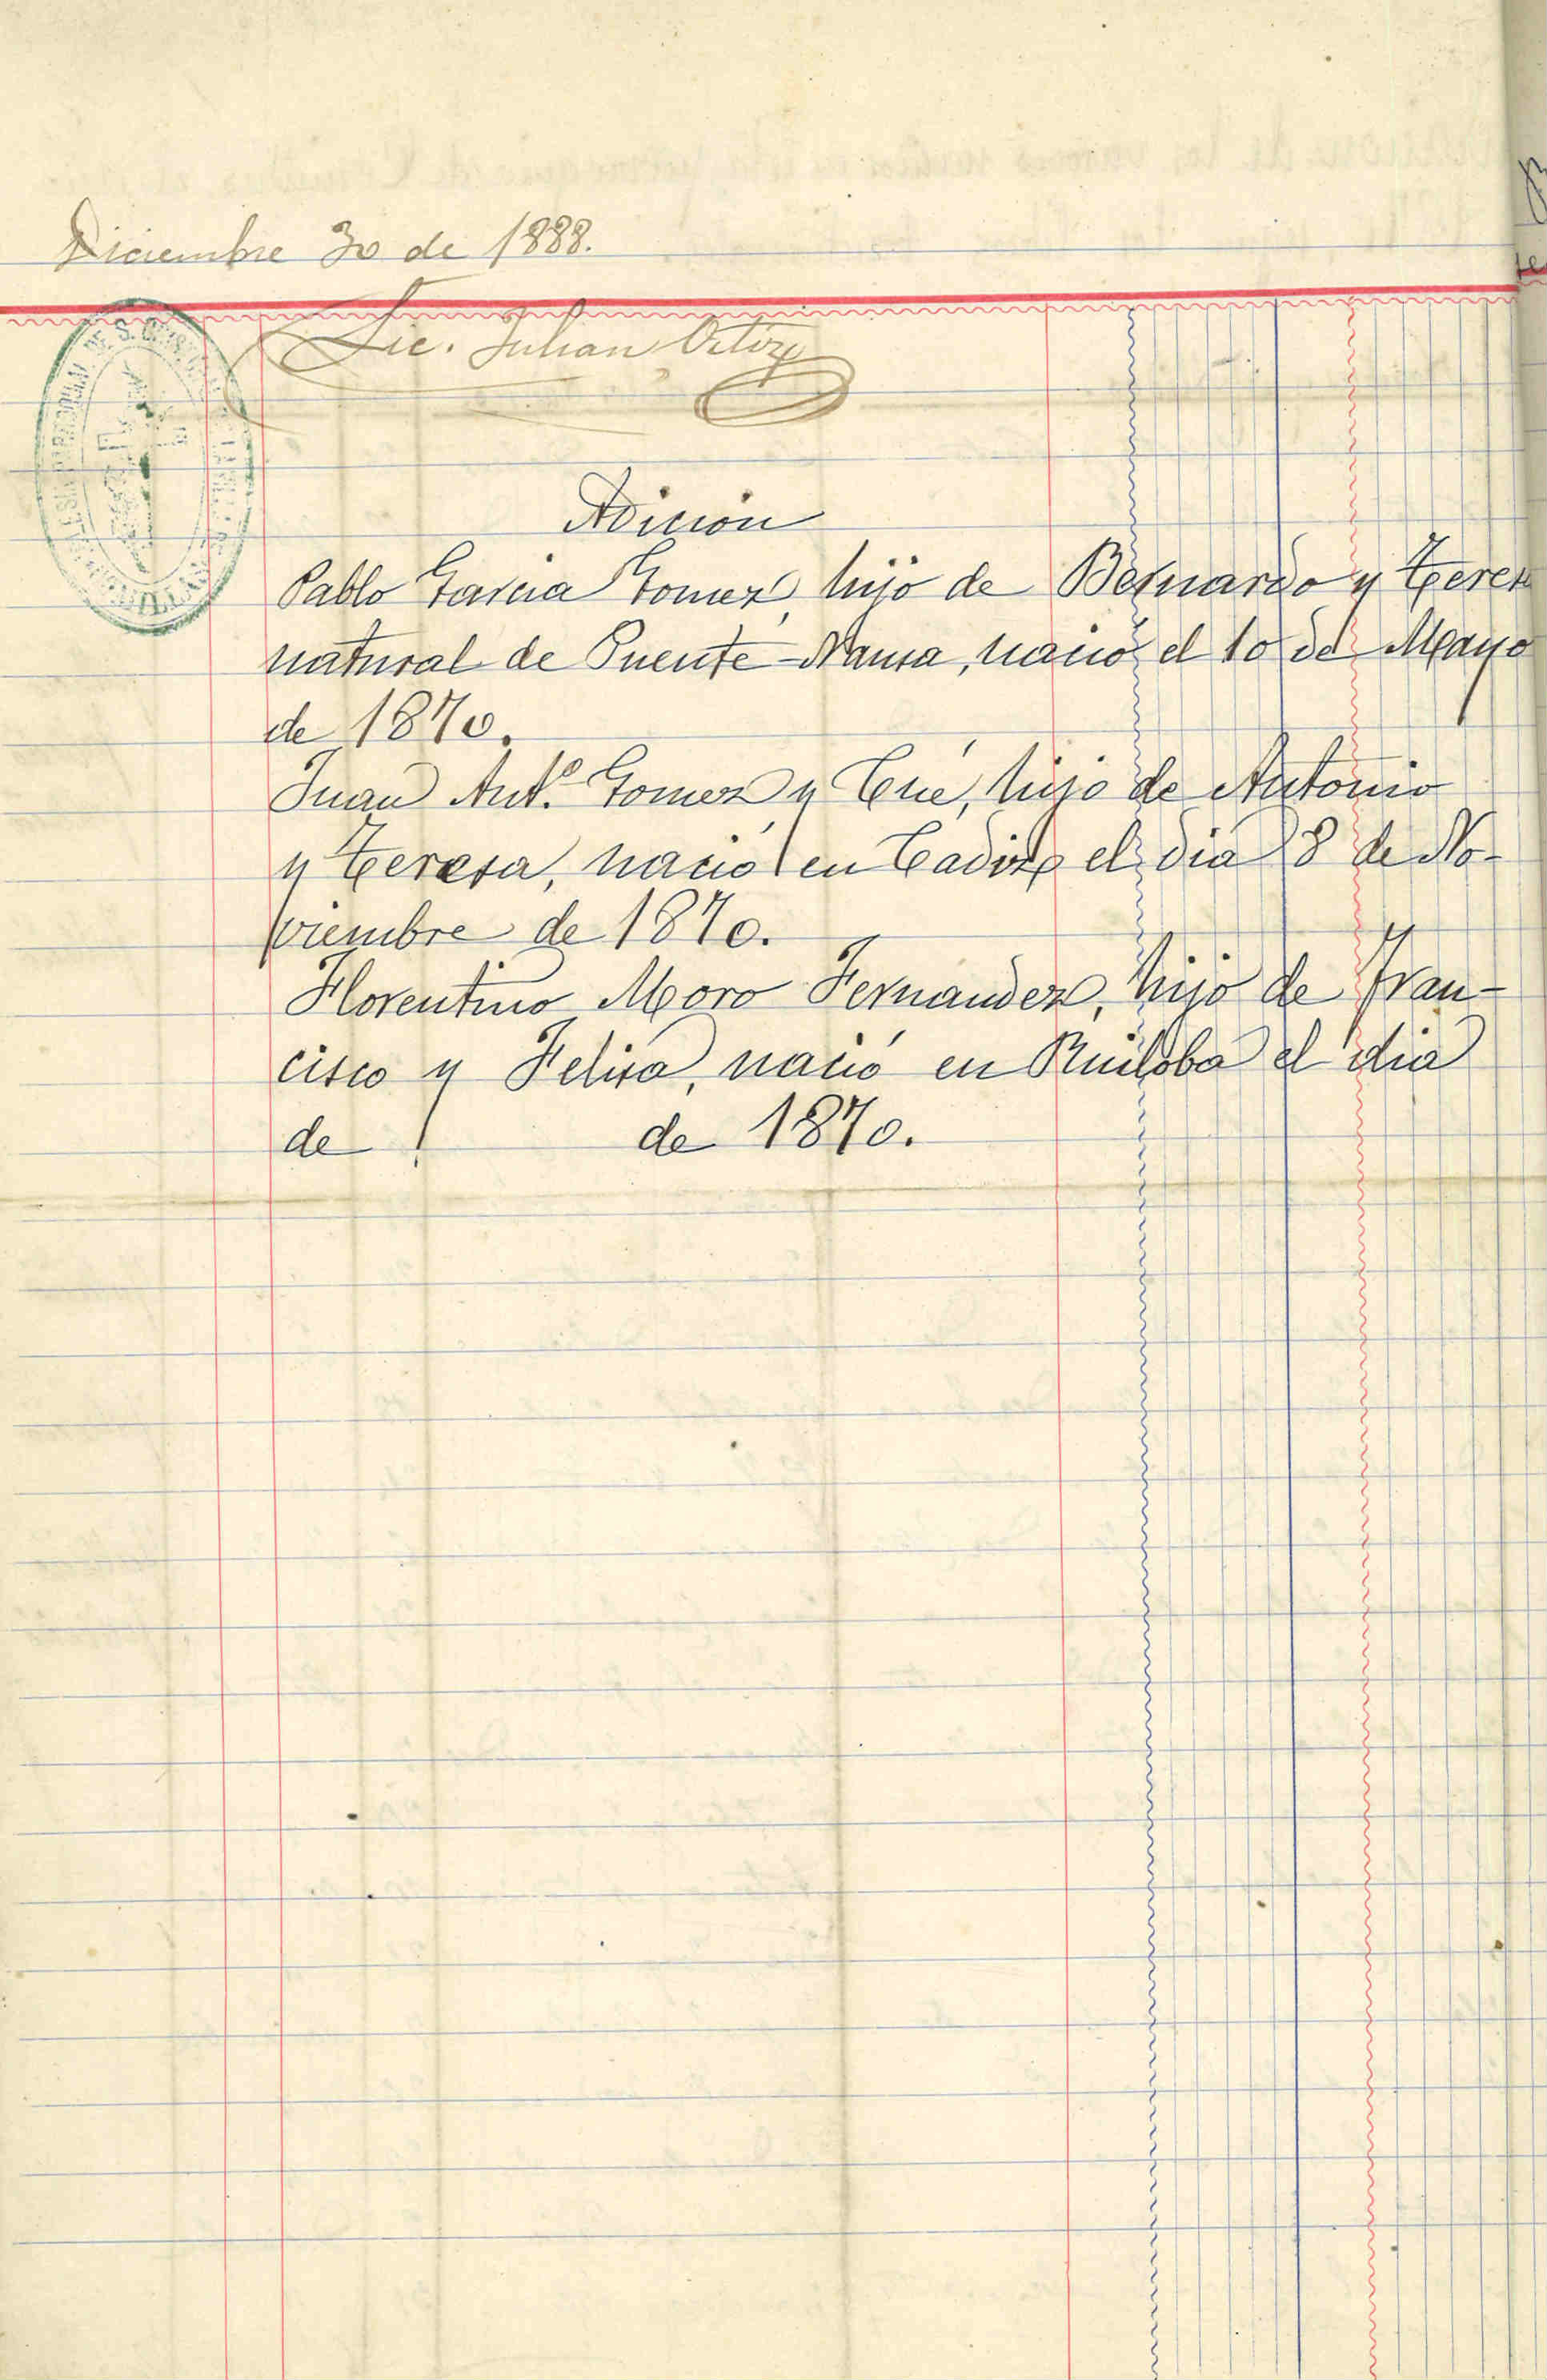 Diciembre 30 de 1888.
Lic. Julian Ortiz
Adicion
Pablo Garcia Gomez, hijo de Bernardo y Teres
natural de Puente-Nansa, nació el 10 de Mayo
de 1870.
Juan Ant.º Gomez y Cué, hijo de Antonio
y Teresa, nació en Cadiz el dia 28 de No-
viembre de 1870.
Florentino Moro Fernandez, hijo de Fran-
cisco y Felisa, nació en Ruiloba el dia
de de 1870.